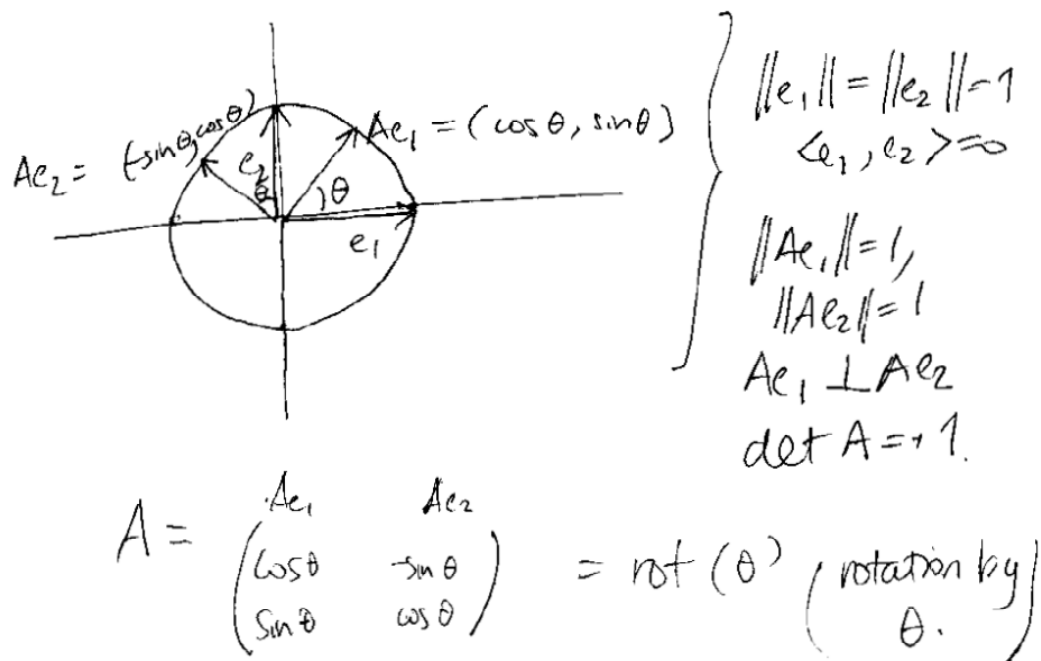 Ae₂ = (-sinθ, cosθ)
e₂
θ
Ae₁ = (cosθ, sinθ)
θ
e₁
||e₁|| = ||e₂|| = 1
<e₁, e₂> = 0
||Ae₁|| = 1,
||Ae₂|| = 1
Ae₁ ⊥ Ae₂
det A = +1.
Ae₁ Ae₂
A = ( cosθ -sinθ
sinθ cosθ ) = rot (θ) ( rotation by
θ. )